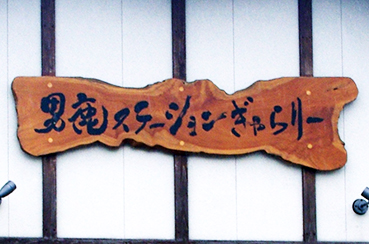 男鹿ステーションぎゃらりー